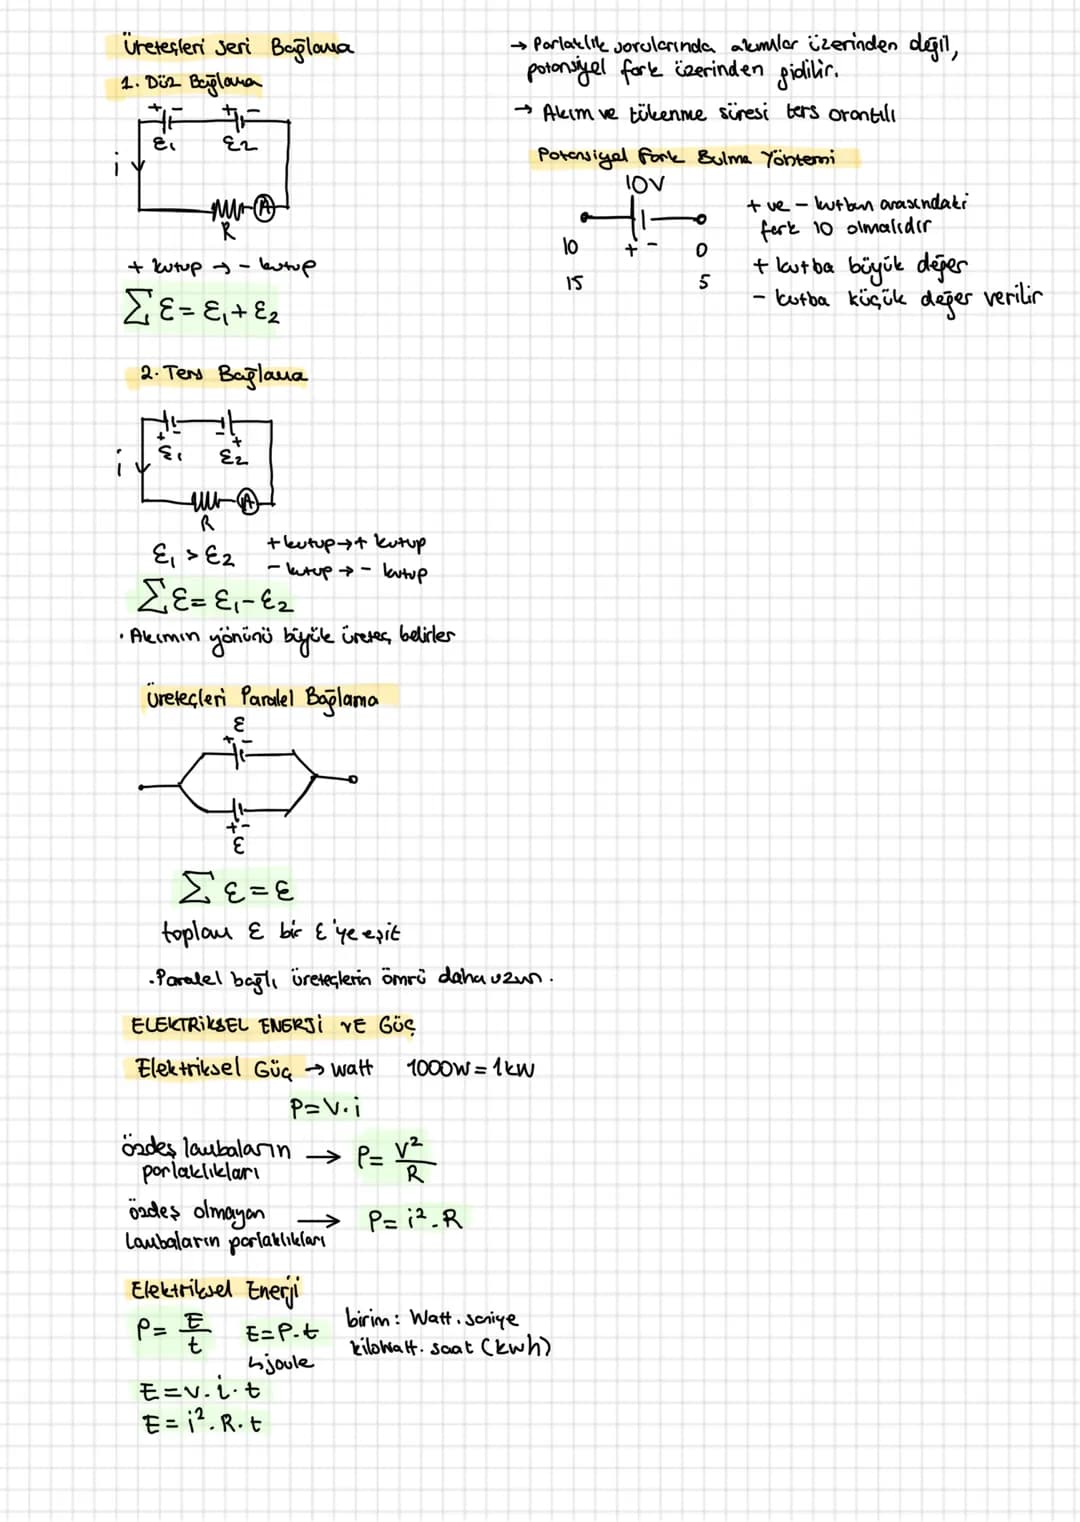 Üreteçleri Seri Bağlama
1. Düz Bağlama
+ - + -
ε₁ ε₂
i
A
R
+ kutup → - kutup
∑ε = ε₁ + ε₂
2. Ters Bağlama
+ - - +
ε₁ ε₂
i
A
R
ε₁ > ε₂
+ kutup → + kutup
- kutup → - kutup
∑ε = ε₁ - ε₂
· Akımın yönünü büyük üreteç belirler
Üreteçleri Paralel Bağlama
ε
+ -
+ -
ε
∑ε = ε
toplam ε bir ε'ye eşit
· Paralel bağlı üreteçlerin ömrü daha uzun.
ELEKTRİKSEL ENERJİ VE GÜÇ
Elektriksel Güç → watt 1000W = 1kW
P = V.i
özdeş lambaların parlaklıkları → P = V²/R
özdeş olmayan lambaların parlaklıkları → P = i².R
Elektriksel Enerji
P = E/t E = P.t
↳ joule
birim: Watt.saniye
kiloWatt.saat (kwh)
E = v.i.t
E = i².R.t
→ Parlaklık sorularında akımlar üzerinden değil,
potansiyel fark üzerinden gidilir.
→ Akım ve tükenme süresi ters orantılı
Potansiyel Fark Bulma Yöntemi
10V
10 + - 0
15 5
+ ve - kutbun arasındaki
fark 10 olmalıdır
+ kutba büyük değer
- kutba küçük değer verilir